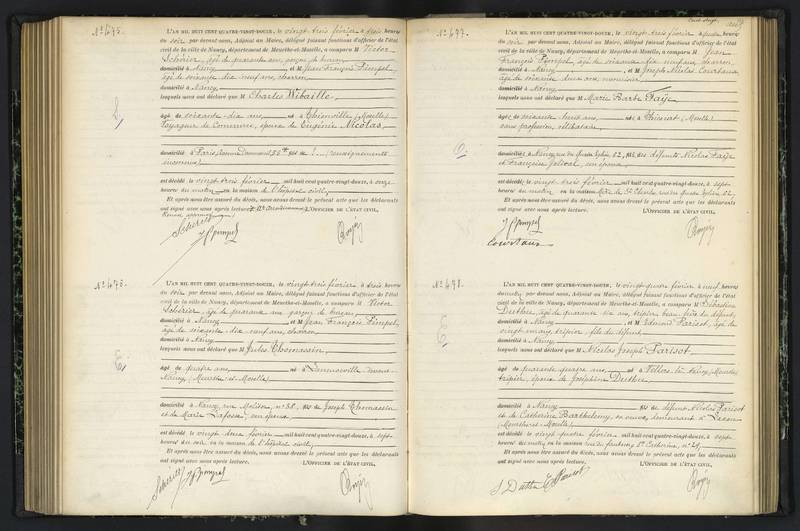 N° 475.
L'AN MIL HUIT CENT QUATRE-VINGT-DOUZE, le vingt trois février à trois heures
du soir par devant nous, Adjoint au Maire, délégué faisant fonctions d'officier de l'état
civil de la ville de Nancy, département de Meurthe-et-Moselle, a comparu M Victor
Schérier, âgé de quarante ans, garçon de bureau
domicilié à Nancy, et M Jean François Pimpel,
âgé de soixante dix neuf ans, charron
domicilié à Nancy
lesquels nous ont déclaré que M Charles Wibaille
âgé de soixante dix ans, né à Thionville (Moselle)
voyageur de Commerce, époux de Eugénie Nicolas,
domicilié à Paris, fils de (renseignements
inconnus)
est décédé le vingt trois février mil huit cent quatre-vingt-douze, à onze
heures du matin en la maison de l'hôpital civil,
Et après nous être assuré du décès, nous avons dressé le présent acte que les déclarants
ont signé avec nous après lecture. L'OFFICIER DE L'ÉTAT CIVIL,
N° 476.
L'AN MIL HUIT CENT QUATRE-VINGT-DOUZE, le vingt-trois février à trois heures
du soir par devant nous, Adjoint au Maire, délégué faisant fonctions d'officier de l'état
civil de la ville de Nancy, département de Meurthe-et-Moselle, a comparu M Victor
Schérier, âgé de quarante ans, garçon de bureau,
domicilié à Nancy, et M Jean François Pimpel,
âgé de soixante dix neuf ans, charron
domicilié à Nancy
lesquels nous ont déclaré que M Jules Thomassin
âgé de quatre ans, né à Laneuveville devant
Nancy (Meurthe-et-Moselle)
domicilié à Nancy, rue Molitor, n° 38, fils de Joseph Thomassin
et de Marie Lafosse, son épouse
est décédé le vingt trois février mil huit cent quatre-vingt-douze, à sept
heures du soir en la maison de l'hôpital civil,
Et après nous être assuré du décès, nous avons dressé le présent acte que les déclarants
ont signé avec nous après lecture. L'OFFICIER DE L'ÉTAT CIVIL,
N° 477.
L'AN MIL HUIT CENT QUATRE-VINGT-DOUZE, le vingt trois février à quatre heures
du soir par devant nous, Adjoint au Maire, délégué faisant fonctions d'officier de l'état
civil de la ville de Nancy, département de Meurthe-et-Moselle, a comparu M Jean
François Pimpel, âgé de soixante dix neuf ans, charron,
domicilié à Nancy, et M Joseph Nicolas Courtaux
âgé de soixante deux ans, menuisier
domicilié à Nancy
lesquels nous ont déclaré que M Marie Barbe Faÿe
âgé de soixante huit ans, né à (Moselle)
sans profession, célibataire
domicilié à Nancy, 62, fils des défunts Nicolas Faÿe
et Françoise Jolival, son épouse
est décédé le vingt trois février mil huit cent quatre-vingt-douze, à sept
heures du matin en la maison St Charles 62,
Et après nous être assuré du décès, nous avons dressé le présent acte que les déclarants
ont signé avec nous après lecture. L'OFFICIER DE L'ÉTAT CIVIL,
Courtaux
N° 478.
L'AN MIL HUIT CENT QUATRE-VINGT-DOUZE, le vingt-quatre février à neuf heures
du matin par devant nous, Adjoint au Maire, délégué faisant fonctions d'officier de l'état
civil de la ville de Nancy, département de Meurthe-et-Moselle, a comparu M Sébastien
âgé de quarante dix ans, tripier, beau-frère du défunt,
domicilié à Nancy, et M Edmond Parisot, âgé de
vingt un ans, tripier, fils du défunt,
domicilié à Nancy
lesquels nous ont déclaré que M Nicolas Joseph Parisot
âgé de quarante quatre ans, né à Villers-lès-Nancy (Meurthe)
tripier, époux de Joséphine
domicilié à Nancy fils de défunt Nicolas Parisot
et de Catherine Barthélemy, sa veuve, demeurant à
(Meurthe-et-Moselle)
est décédé le vingt quatre février mil huit cent quatre-vingt-douze, à sept
heures du matin en la maison rue du faubourg Ste Catherine, n° 29,
Et après nous être assuré du décès, nous avons dressé le présent acte que les déclarants
ont signé avec nous après lecture. L'OFFICIER DE L'ÉTAT CIVIL,
E. Parisot